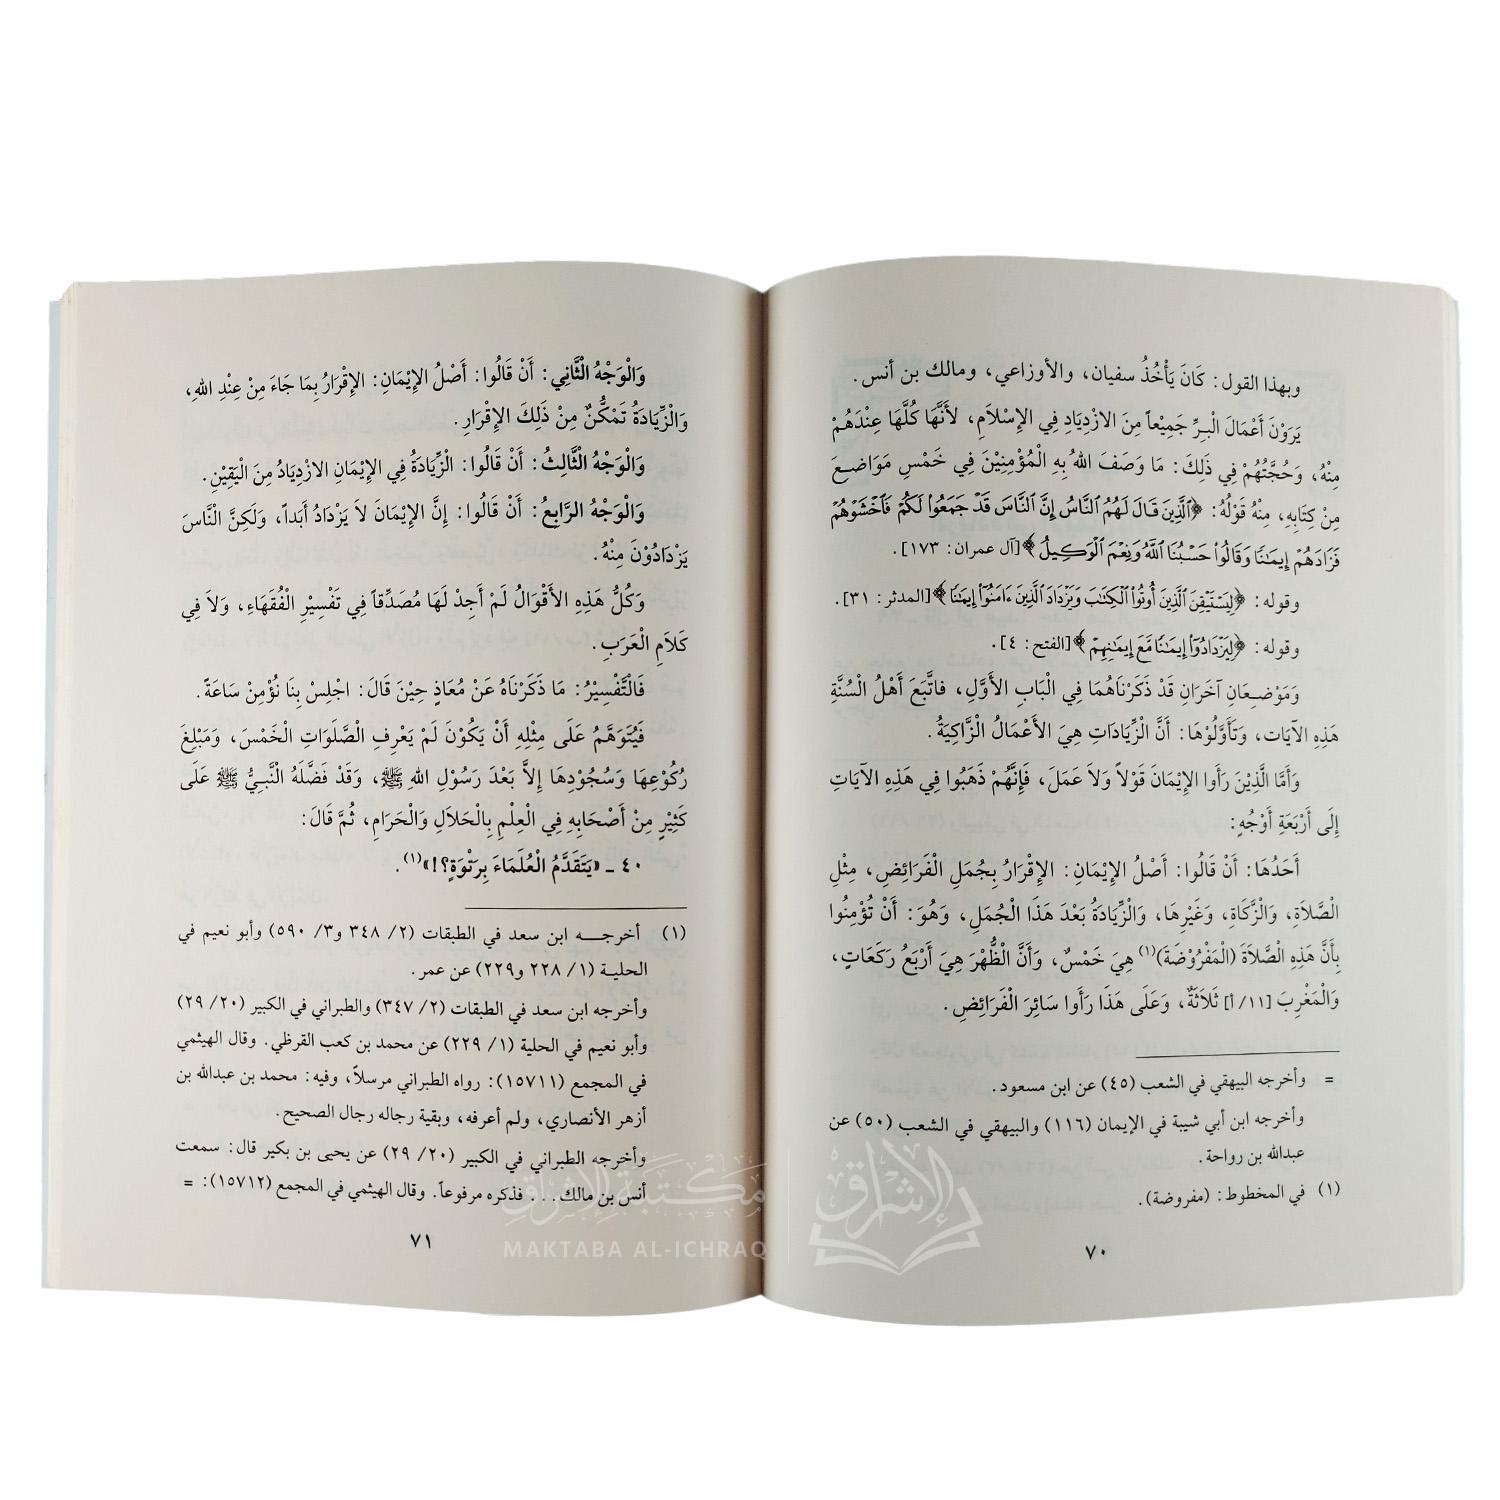 وبهذا القول: كَانَ يَأْخُذُ سفيان، والأوزاعي، ومالك بن أنس.
يَرَوْنَ أَعْمَالَ الْبِرِّ جَمِيْعاً مِنَ الازْدِيَادِ فِي الإِسْلَامِ، لأَنَّهَا كُلَّهَا عِنْدَهُمْ
مِنْهُ، وَحُجَّتُهُمْ فِي ذَلِكَ: مَا وَصَفَ اللهُ بِهِ الْمُؤْمِنِيْنَ فِي خَمْسِ مَوَاضِعَ
مِنْ كِتَابِهِ، مِنْهُ قَوْلُهُ: ﴿ٱلَّذِينَ قَالَ لَهُمُ ٱلنَّاسُ إِنَّ ٱلنَّاسَ قَدْ جَمَعُوا۟ لَكُمْ فَٱخْشَوْهُمْ
فَزَادَهُمْ إِيمَـٰنًا وَقَالُوا۟ حَسْبُنَا ٱللَّهُ وَنِعْمَ ٱلْوَكِيلُ﴾ [آل عمران: ١٧٣].
وقوله: ﴿لِيَسْتَيْقِنَ ٱلَّذِينَ أُوتُوا۟ ٱلْكِتَـٰبَ وَيَزْدَادَ ٱلَّذِينَ ءَامَنُوٓا۟ إِيمَـٰنًا﴾ [المدثر: ٣١].
وقوله: ﴿لِيَزْدَادُوٓا۟ إِيمَـٰنًا مَّعَ إِيمَـٰنِهِمْ﴾ [الفتح: ٤].
وَمَوْضِعَانِ آخَرَانِ قَدْ ذَكَرْنَاهُمَا فِي الْبَابِ الأَوَّلِ، فاتَّبَعَ أَهْلُ السُّنَّةِ
هَذِهِ الآيَات، وَتَأَوَّلُوْهَا: أَنَّ الزِّيَادَاتِ هِيَ الأَعْمَالُ الزَّاكِيَةُ.
وَأَمَّا الَّذِيْنَ رَأَوا الإِيْمَانَ قَوْلاً وَلاَ عَمَلَ، فَإِنَّهُمْ ذَهَبُوا فِي هَذِهِ الآيَاتِ
إِلَى أَرْبَعَةِ أَوْجُهٍ:
أَحَدُهَا: أَنْ قَالُوا: أَصْلُ الإِيْمَانِ: الإِقْرَارُ بِجُمَلِ الْفَرَائِضِ، مِثْلِ
الصَّلاَةِ، وَالزَّكَاةِ، وَغَيْرِهَا، وَالزِّيَادَةُ بَعْدَ هَذَا الْجُمَلِ، وَهُوَ: أَنْ تُؤْمِنُوا
بِأَنَّ هَذِهِ الصَّلاَةَ (الْمَفْرُوْضَةَ)(١) هِيَ خَمْسٌ، وَأَنَّ الظُّهْرَ هِيَ أَرْبَعُ رَكَعَاتٍ،
وَالْمَغْرِبَ [١١/ أ] ثَلاَثَةٌ، وَعَلَى هَذَا رَأَوا سَائِرَ الْفَرَائِضِ.
= وأخرجه البيهقي في الشعب (٤٥) عن ابن مسعود.
وأخرجه ابن أبي شيبة في الإيمان (١١٦) والبيهقي في الشعب (٥٠) عن
عبدالله بن رواحة.
(١) في المخطوط: (مفروضة).
٧٠
وَالْوَجْهُ الثَّانِي: أَنْ قَالُوا: أَصْلُ الإِيْمَانِ: الإِقْرَارُ بِمَا جَاءَ مِنْ عِنْدِ اللهِ،
وَالزِّيَادَةُ تَمَكُّنٌ مِنْ ذَلِكَ الإِقْرَارِ.
وَالْوَجْهُ الثَّالِثُ: أَنْ قَالُوا: الزِّيَادَةُ فِي الإِيْمَانِ الازْدِيَادُ مِنَ الْيَقِيْنِ.
وَالْوَجْهُ الرَّابِعُ: أَنْ قَالُوا: إِنَّ الإِيْمَانَ لاَ يَزْدَادُ أَبَداً، وَلَكِنَّ النَّاسَ
يَزْدَادُوْنَ مِنْهُ.
وَكُلُّ هَذِهِ الأَقْوَالُ لَمْ أَجِدْ لَهَا مُصَدِّقاً فِي تَفْسِيْرِ الْفُقَهَاءِ، وَلاَ فِي
كَلاَمِ الْعَرَبِ.
فَالْتَّفْسِيْرُ: مَا ذَكَرْنَاهُ عَنْ مُعَاذٍ حِيْنَ قَالَ: اجْلِسْ بِنَا نُؤْمِنْ سَاعَةً.
فَيُتَوَهَّمُ عَلَى مِثْلِهِ أَنْ يَكُوْنَ لَمْ يَعْرِفِ الصَّلَوَاتِ الْخَمْسَ، وَمَبْلِغَ
رُكُوْعِهَا وَسُجُودِهَا إِلاَّ بَعْدَ رَسُوْلِ اللهِ ﷺ، وَقَدْ فَضَّلَهُ النَّبِيُّ ﷺ عَلَى
كَثِيْرٍ مِنْ أَصْحَابِهِ فِي الْعِلْمِ بِالْحَلاَلِ وَالْحَرَامِ، ثُمَّ قَالَ:
٤٠ ـ «يَتَقَدَّمُ الْعُلَمَاءَ بِرَتْوَةٍ؟!»(١).
(١) أخرجـــه ابن سعد في الطبقات (٢/ ٣٤٨ و٣/ ٥٩٠) وأبو نعيم في
الحلية (١/ ٢٢٨ و٢٢٩) عن عمر.
وأخرجه ابن سعد في الطبقات (٢/ ٣٤٧) والطبراني في الكبير (٢٠/ ٢٩)
وأبو نعيم في الحلية (١/ ٢٢٩) عن محمد بن كعب القرظي. وقال الهيثمي
في المجمع (١٥٧١١): رواه الطبراني مرسلاً، وفيه: محمد بن عبدالله بن
أزهر الأنصاري، ولم أعرفه، وبقية رجاله رجال الصحيح.
وأخرجه الطبراني في الكبير (٢٠/ ٢٩) عن يحيى بن بكير قال: سمعت
أنس بن مالك... فذكره مرفوعاً. وقال الهيثمي في المجمع (١٥٧١٢): =
٧١
مكتبة الإشراق
MAKTABA AL-ICHRAQ
الإشراق